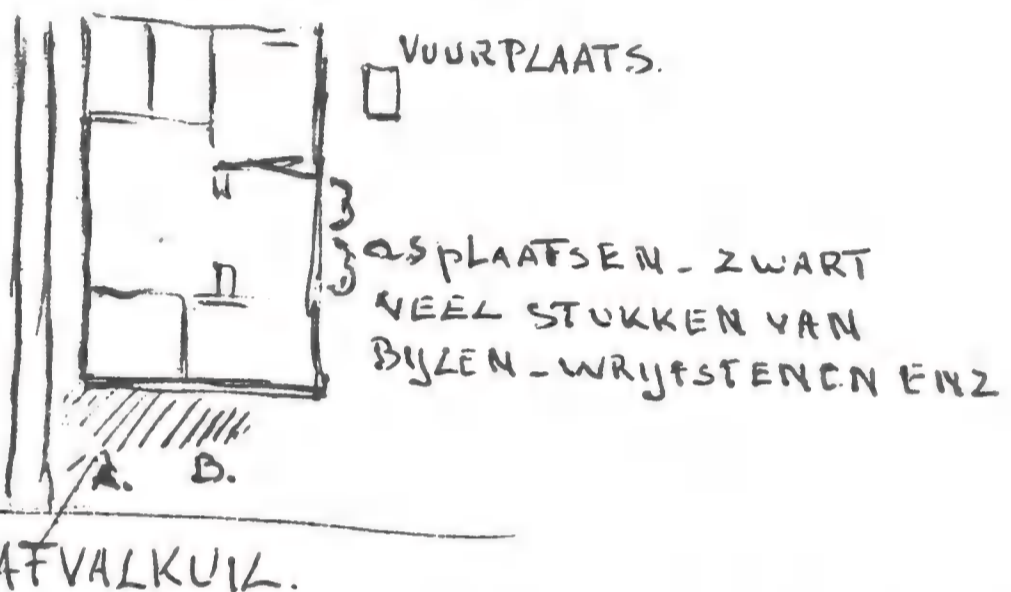 VUURPLAATS.
asPLAATSEN - ZWART
VEEL STUKKEN VAN
BIJLEN - WRIJFSTENEN ENZ
A. B.
AFVALKUIL.